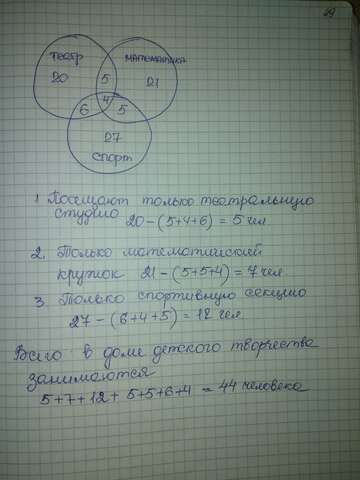 29
театр
математика
20
5
21
4
6
5
27
спорт
1. Посещают только театральную
студию 20-(5+4+6) = 5 чел
2. Только математический
кружок 21-(5+5+4)=7 чел
3. Только спортивную секцию
27-(6+4+5)=12 чел
Всего в доме детского творчества
занимаются
5+7+12+5+5+6+4 = 44 человека